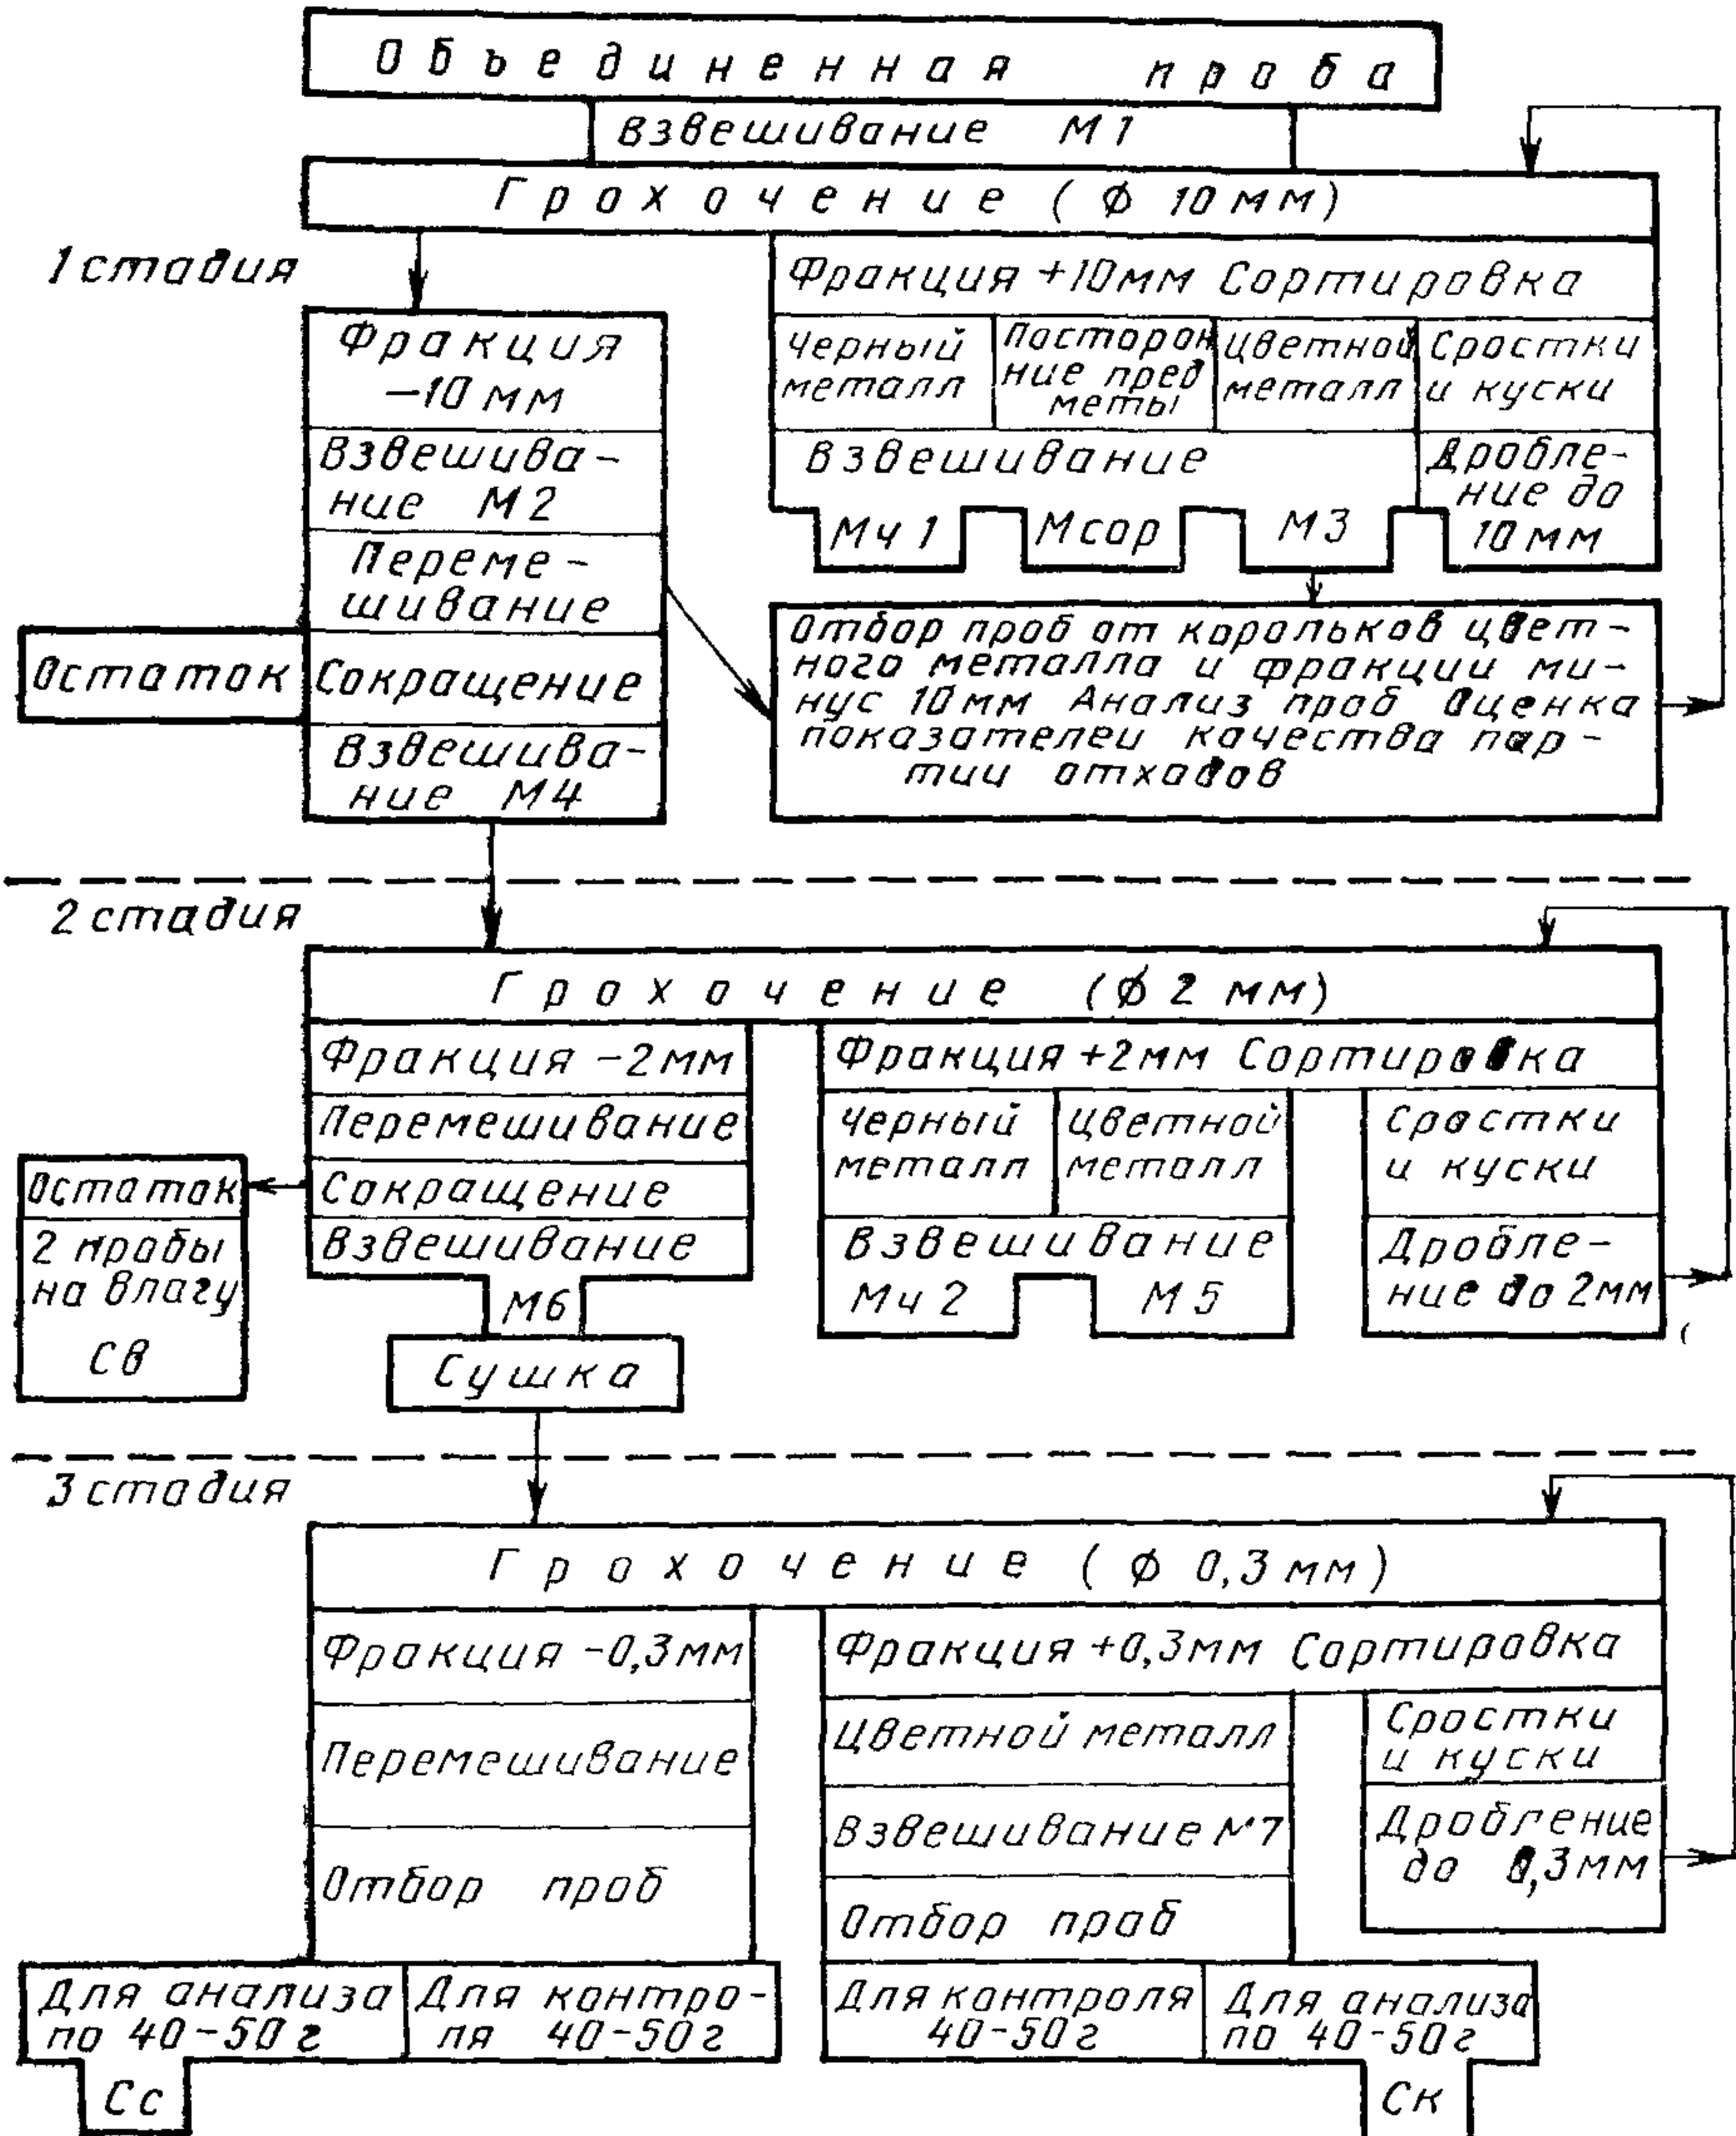 Объединенная проба
Взвешивание М1
Грохочение (ф 10 мм)
1 стадия
Фракция
-10 мм
Взвешива-
ние М2
Переме-
шивание
Остаток
Сокращение
Взвешива-
ние М4
Фракция +10мм Сортировка
Черный
металл
Посторон
ние пред
меты
Цветной
металл
Сростки
и куски
Взвешивание
Дробле-
ние до
10 мм
Мч 1
Мсор
М3
Отбор проб от корольков цвет-
ного металла и фракции ми-
нус 10мм Анализ проб Оценка
показателей качества пар-
тии отходов
2 стадия
Грохочение (ф 2 мм)
Фракция -2мм
Перемешивание
Сокращение
Взвешивание
М6
Остаток
2 пробы
на влагу
Св
Сушка
Фракция +2мм Сортировка
Черный
металл
Цветной
металл
Сростки
и куски
Взвешивание
Мч 2
М5
Дробле-
ние до 2мм
3 стадия
Грохочение (ф 0,3 мм)
Фракция -0,3мм
Перемешивание
Отбор проб
Для анализа
по 40-50г
Для контро-
ля 40-50г
Сс
Фракция +0,3мм Сортировка
Цветной металл
Взвешивание М7
Отбор проб
Сростки
и куски
Дробление
до 0,3мм
Для контроля
40-50г
Для анализа
по 40-50г
Ск